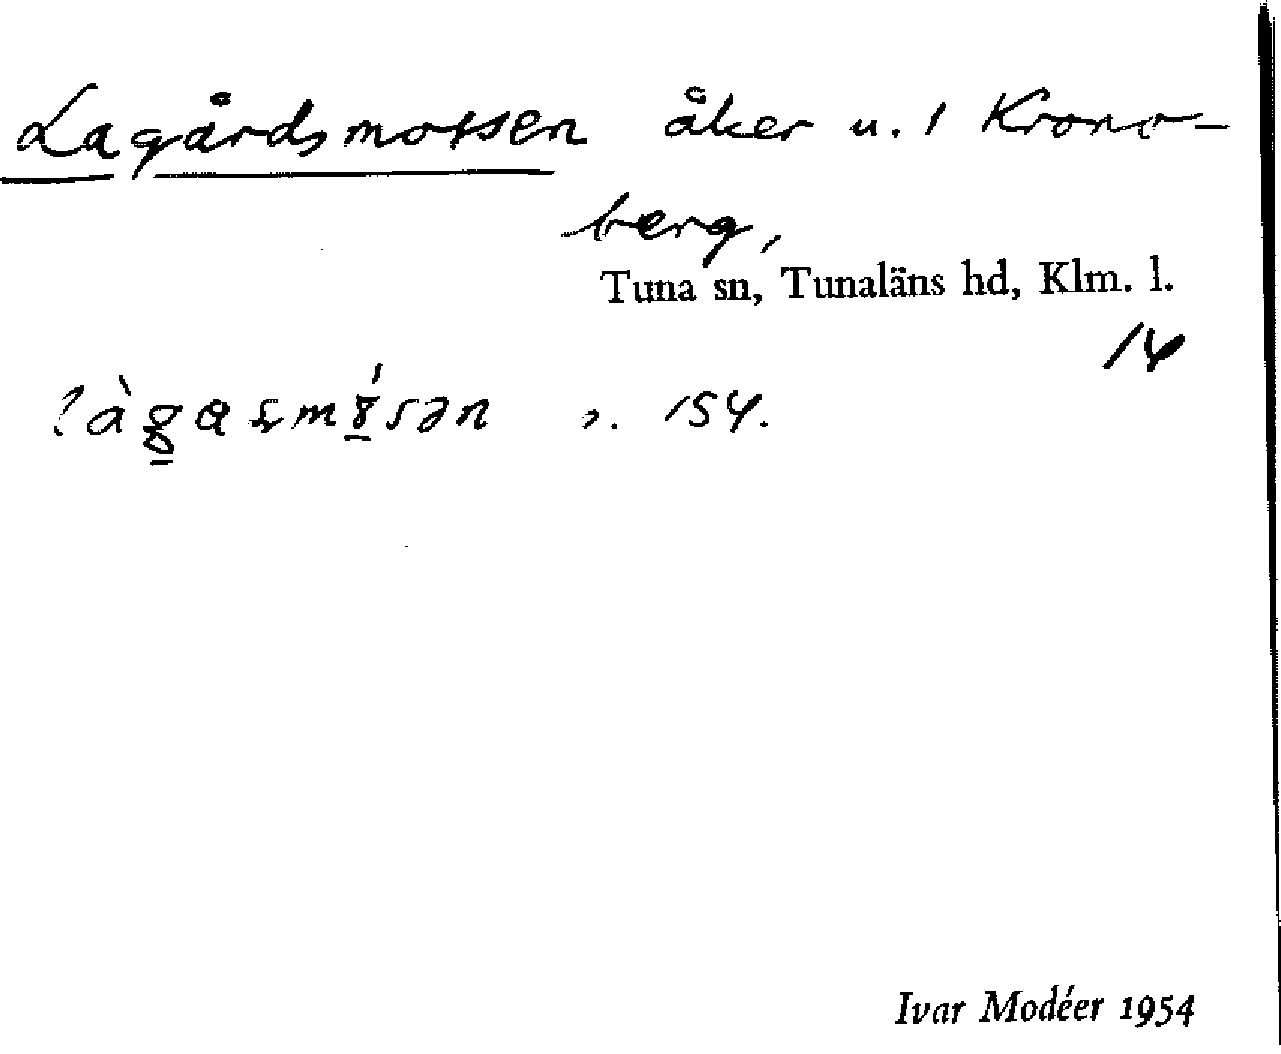 Lagårdsmossen åker u. 1 Krono-
berg,
Tuna sn, Tunaläns hd, Klm. l.
14
154.
Ivar Modéer 1954